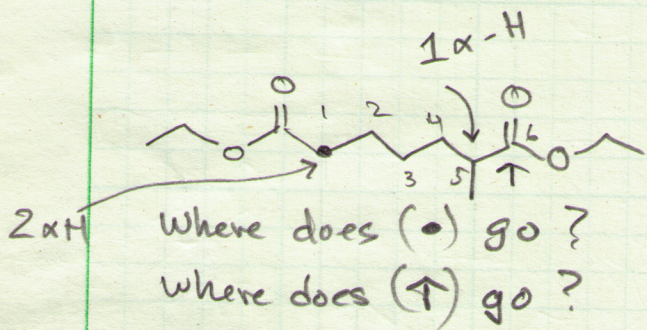 1 α-H
O
O
1 2 4 6
O 3 5 O
2 αH
Where does (•) go?
Where does (↑) go?